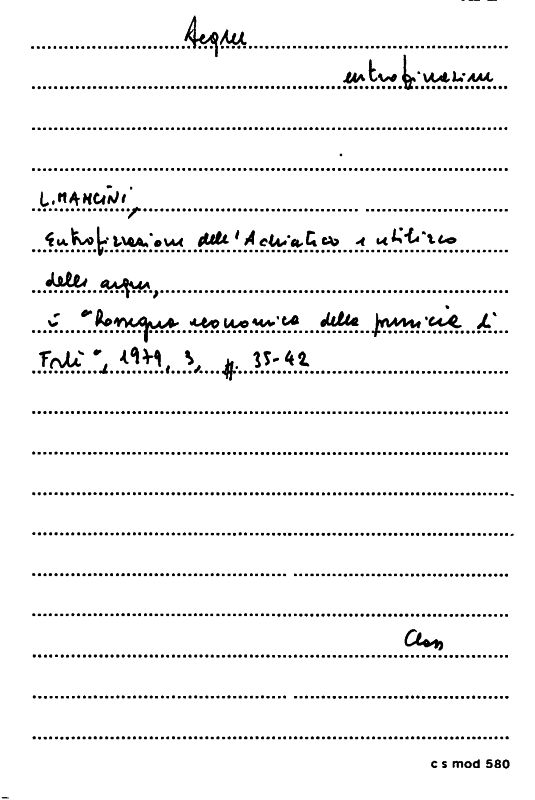 Acque
eutrofizzazione
L. MANCINI,
Eutrofizzazione dell'Adriatico e utilizzo
delle acque,
in "Rassegna economica della provincia di
Forlì", 1979, 3, pp. 35-42
Class
c s mod 580